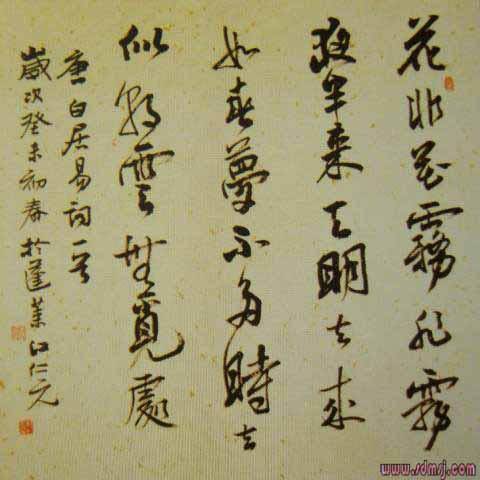 花非花霧非霧
夜半来天明去来
如春夢不多時去
似朝雲無覓處
唐白居易詞一首
歲次癸未初春於蓬萊江仁元
www.sdmsj.com